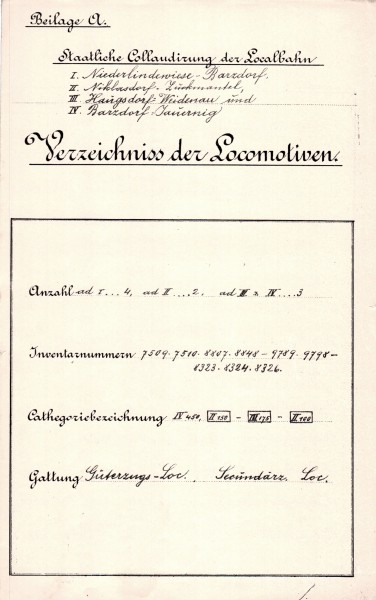 Beilage A.
Staatliche Collaudirung der Localbahn
I. Niederlindewiese-Barzdorf,
II. Niklasdorf-Zuckmantel,
III. Haugsdorf-Weidenau und
IV. Barzdorf-Jauernig
Verzeichniss der Locomotiven.
Anzahl ad I...4, ad II....2, ad III & IV....3
Inventarnummern 7509.7510.8807.8848-9789.9798-
8323.8324.8326.
Cathegoriebezeichnung IV 450, II 150 - III 175 - II 100
Gattung Güterzugs-Loc. Secundärz. Loc.